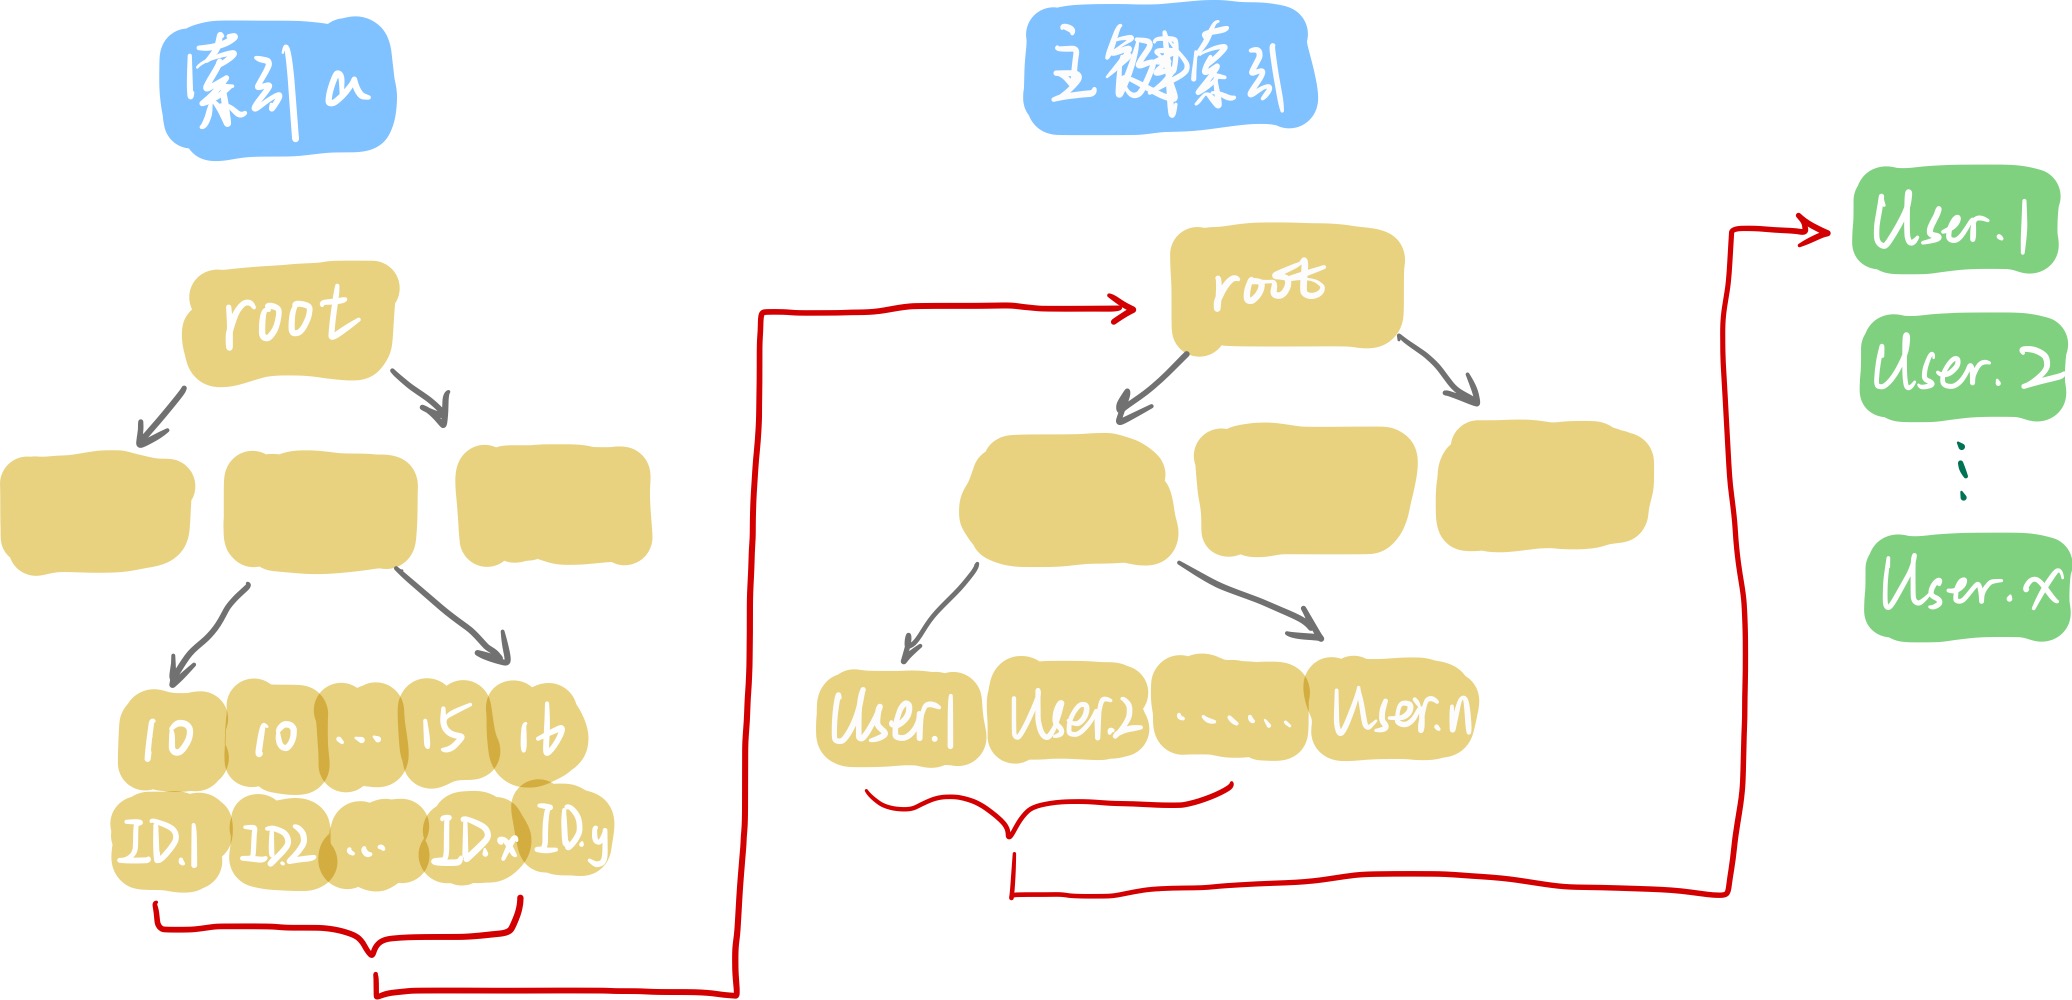 索引 a
主键索引
root
root
10 10 ... 15 16
ID.1 ID.2 ... ID.x ID.y
User.1 User.2 ...... User.n
User.1
User.2
⋮
User.x